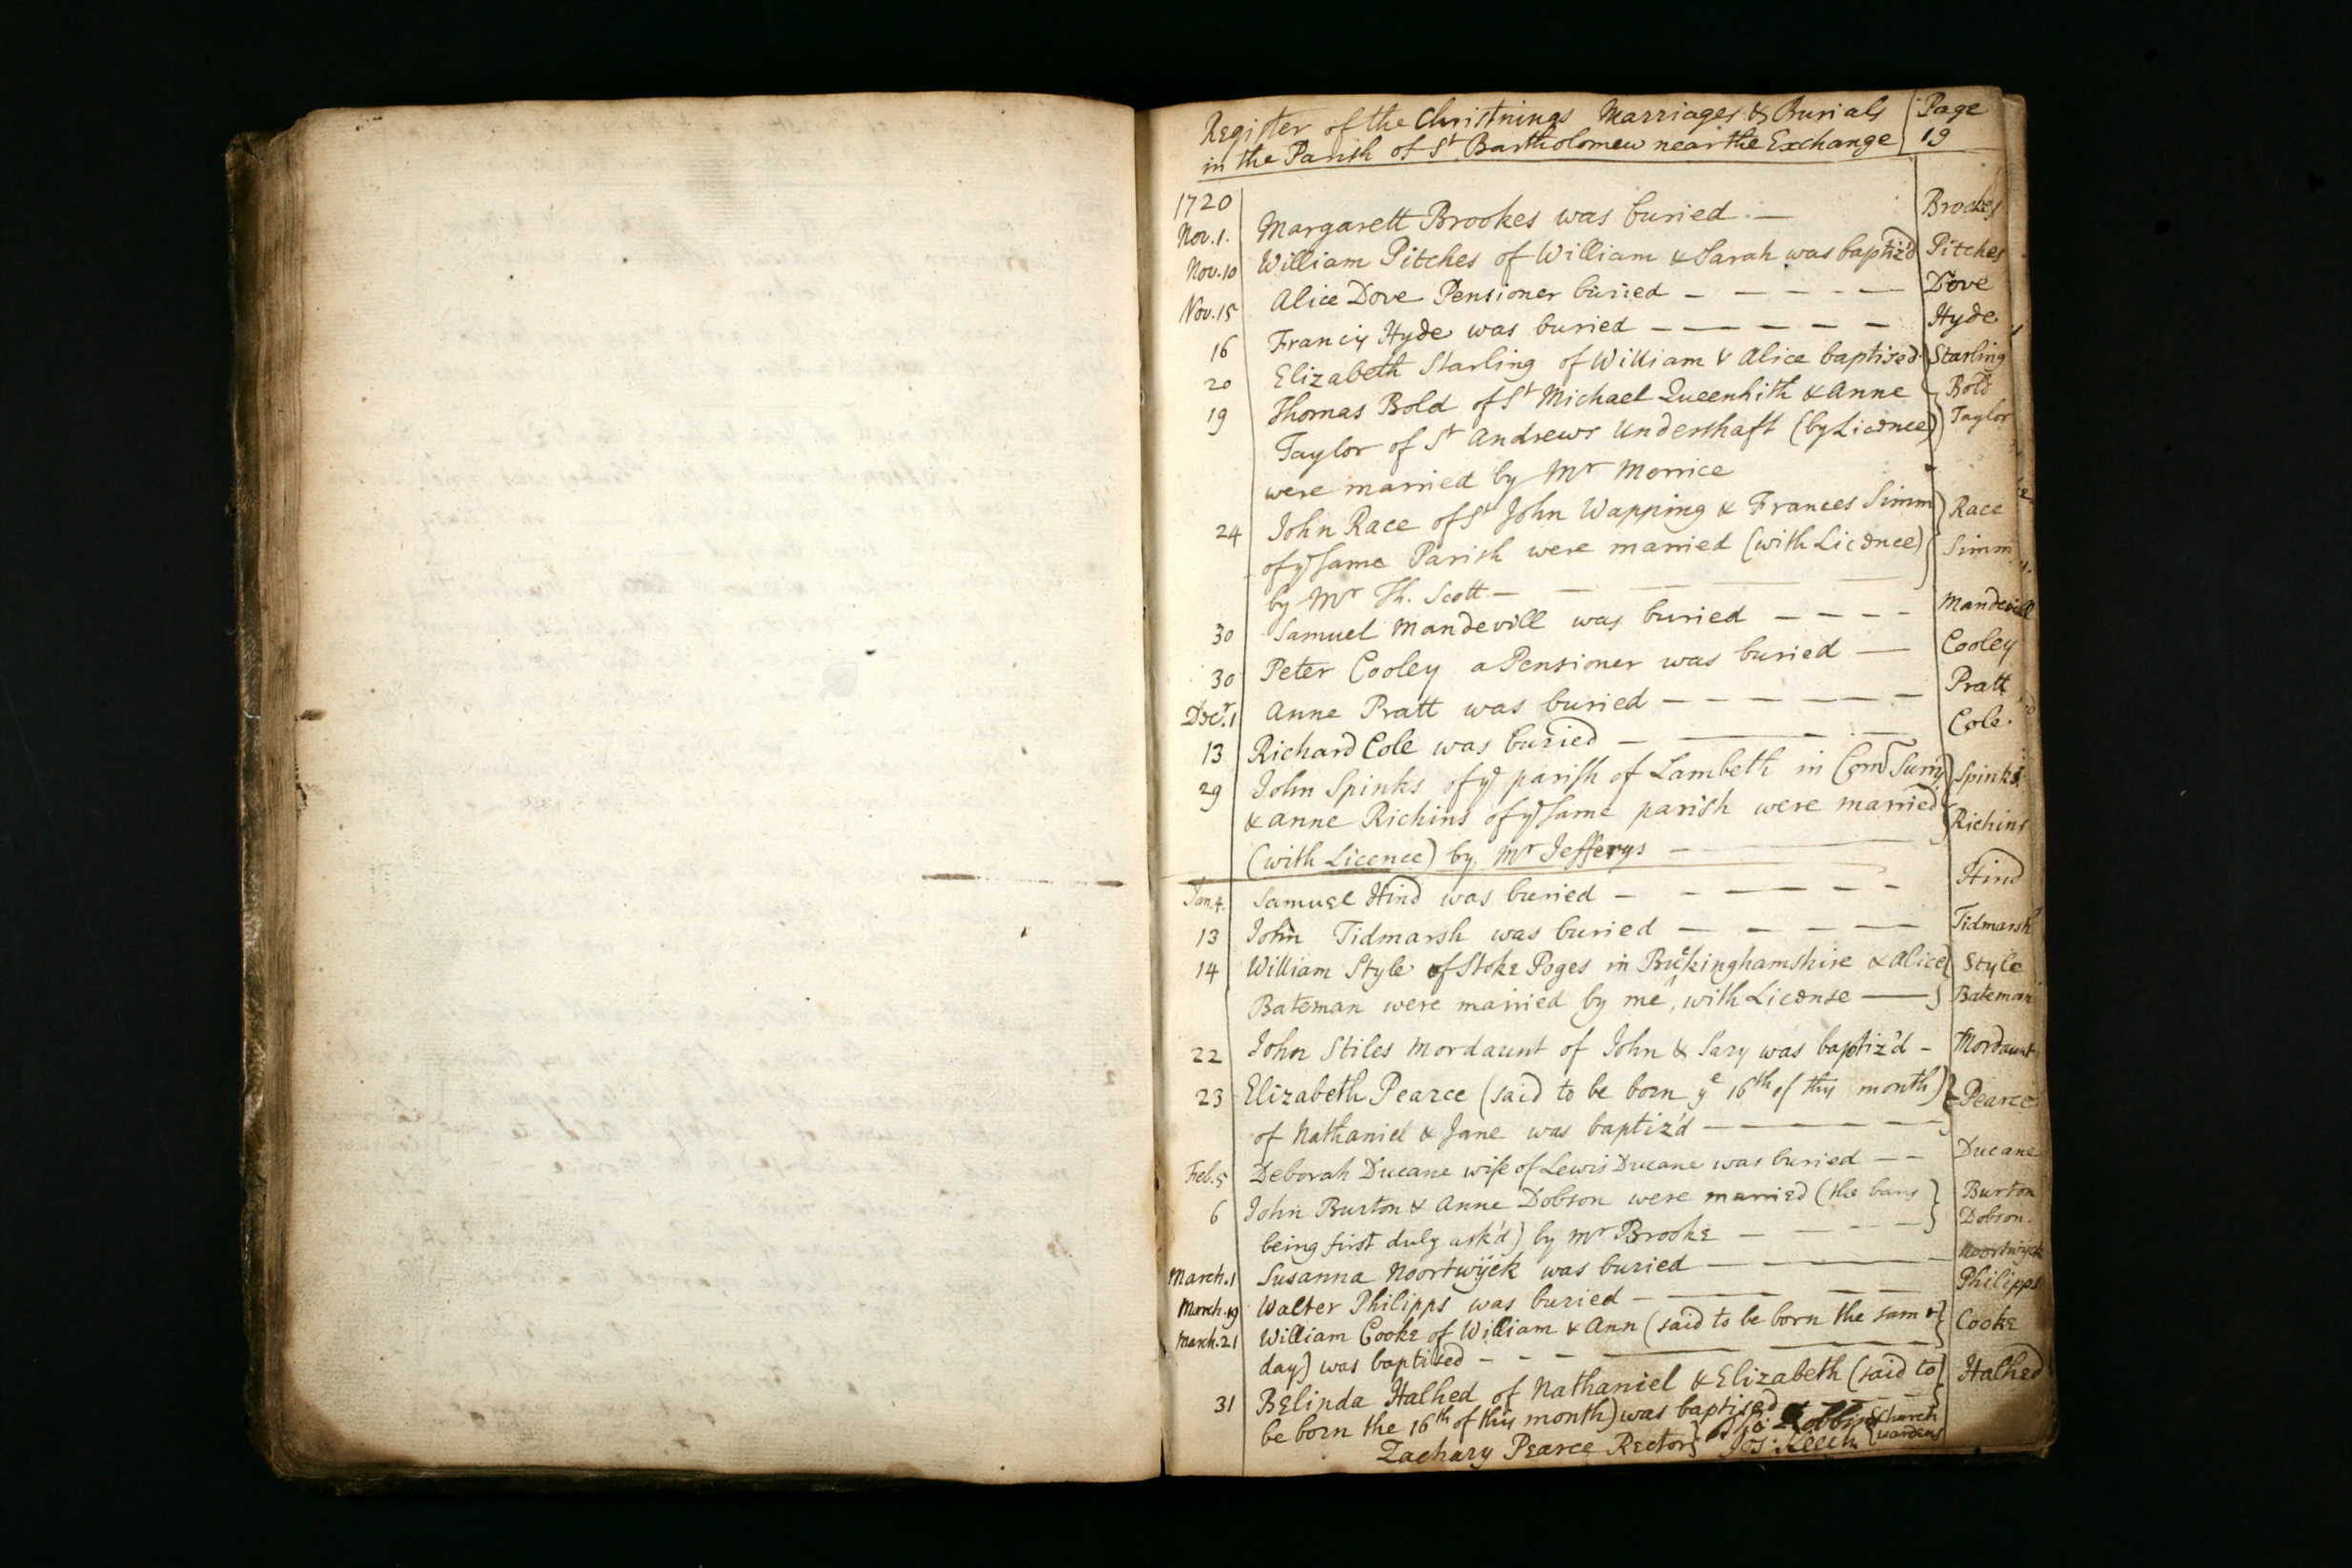 Register of the Christnings Marriages & Burials Page
in the Parish of St Bartholomew near the Exchange 19
1720
Nov. 1. Margarett Brookes was buried. — Brookes
Nov. 10 William Pitches of William & Sarah was baptiz'd Pitches
Nov. 15 Alice Dove Pensioner buried — — — — — Dove
16 Francis Hyde was buried — — — — — Hyde
20 Elizabeth Starling of William & Alice baptised Starling
19 Thomas Bold of St Michael Queenhith & Anne Bold
Taylor of St Andrews Undershaft (by Licence) Taylor
were married by Mr Morrice
24 John Race of St John Wapping & Frances Simm Race
of ye same Parish were married (with Licence) Simm
by Mr Th. Scott — — — — —
30 Samuel Mandevill was buried — — — — Mandevill
30 Peter Cooley a Pensioner was buried — Cooley
Decr. 1 Anne Pratt was buried — — — — — — Pratt
13 Richard Cole was buried — — — — Cole.
29 John Spinks of ye parish of Lambeth in Com Surry Spinks
& Anne Richins of ye same parish were married Richins
(with Licence) by Mr Jefferys — —
Jan. 4. Samuel Hind was buried — — — — — Hind
13 John Tidmarsh was buried — — — — — Tidmarsh
14 William Style of Stoke Poges in Buckinghamshire & Alice Style
Bateman were married by me, with License — Bateman
22 John Stiles Mordaunt of John & Sary was baptiz'd — Mordaunt
23 Elizabeth Pearce (said to be born ye 16th of this month) Pearce
of Nathaniel & Jane was baptiz'd — — — — — —
Feb. 5 Deborah Ducane wife of Lewis Ducane was buried — — Ducane
6 John Burton & Anne Dobson were married (the bans Burton
being first duly ask'd) by Mr Brooke — — — — Dobson.
March. 1 Susanna Noortwÿck was buried — — — — — Noortwÿck
March. 19 Walter Philipps was buried — — — — — Philipps
March. 21 William Cooke of William & Ann (said to be born the same Cooke
day) was baptised — — — — —
31 Belinda Halhed of Nathaniel & Elizabeth (said to Halhed
be born the 16th of this month) was baptised — —
Zachary Pearce Rector Church
Jos: Keech wardens